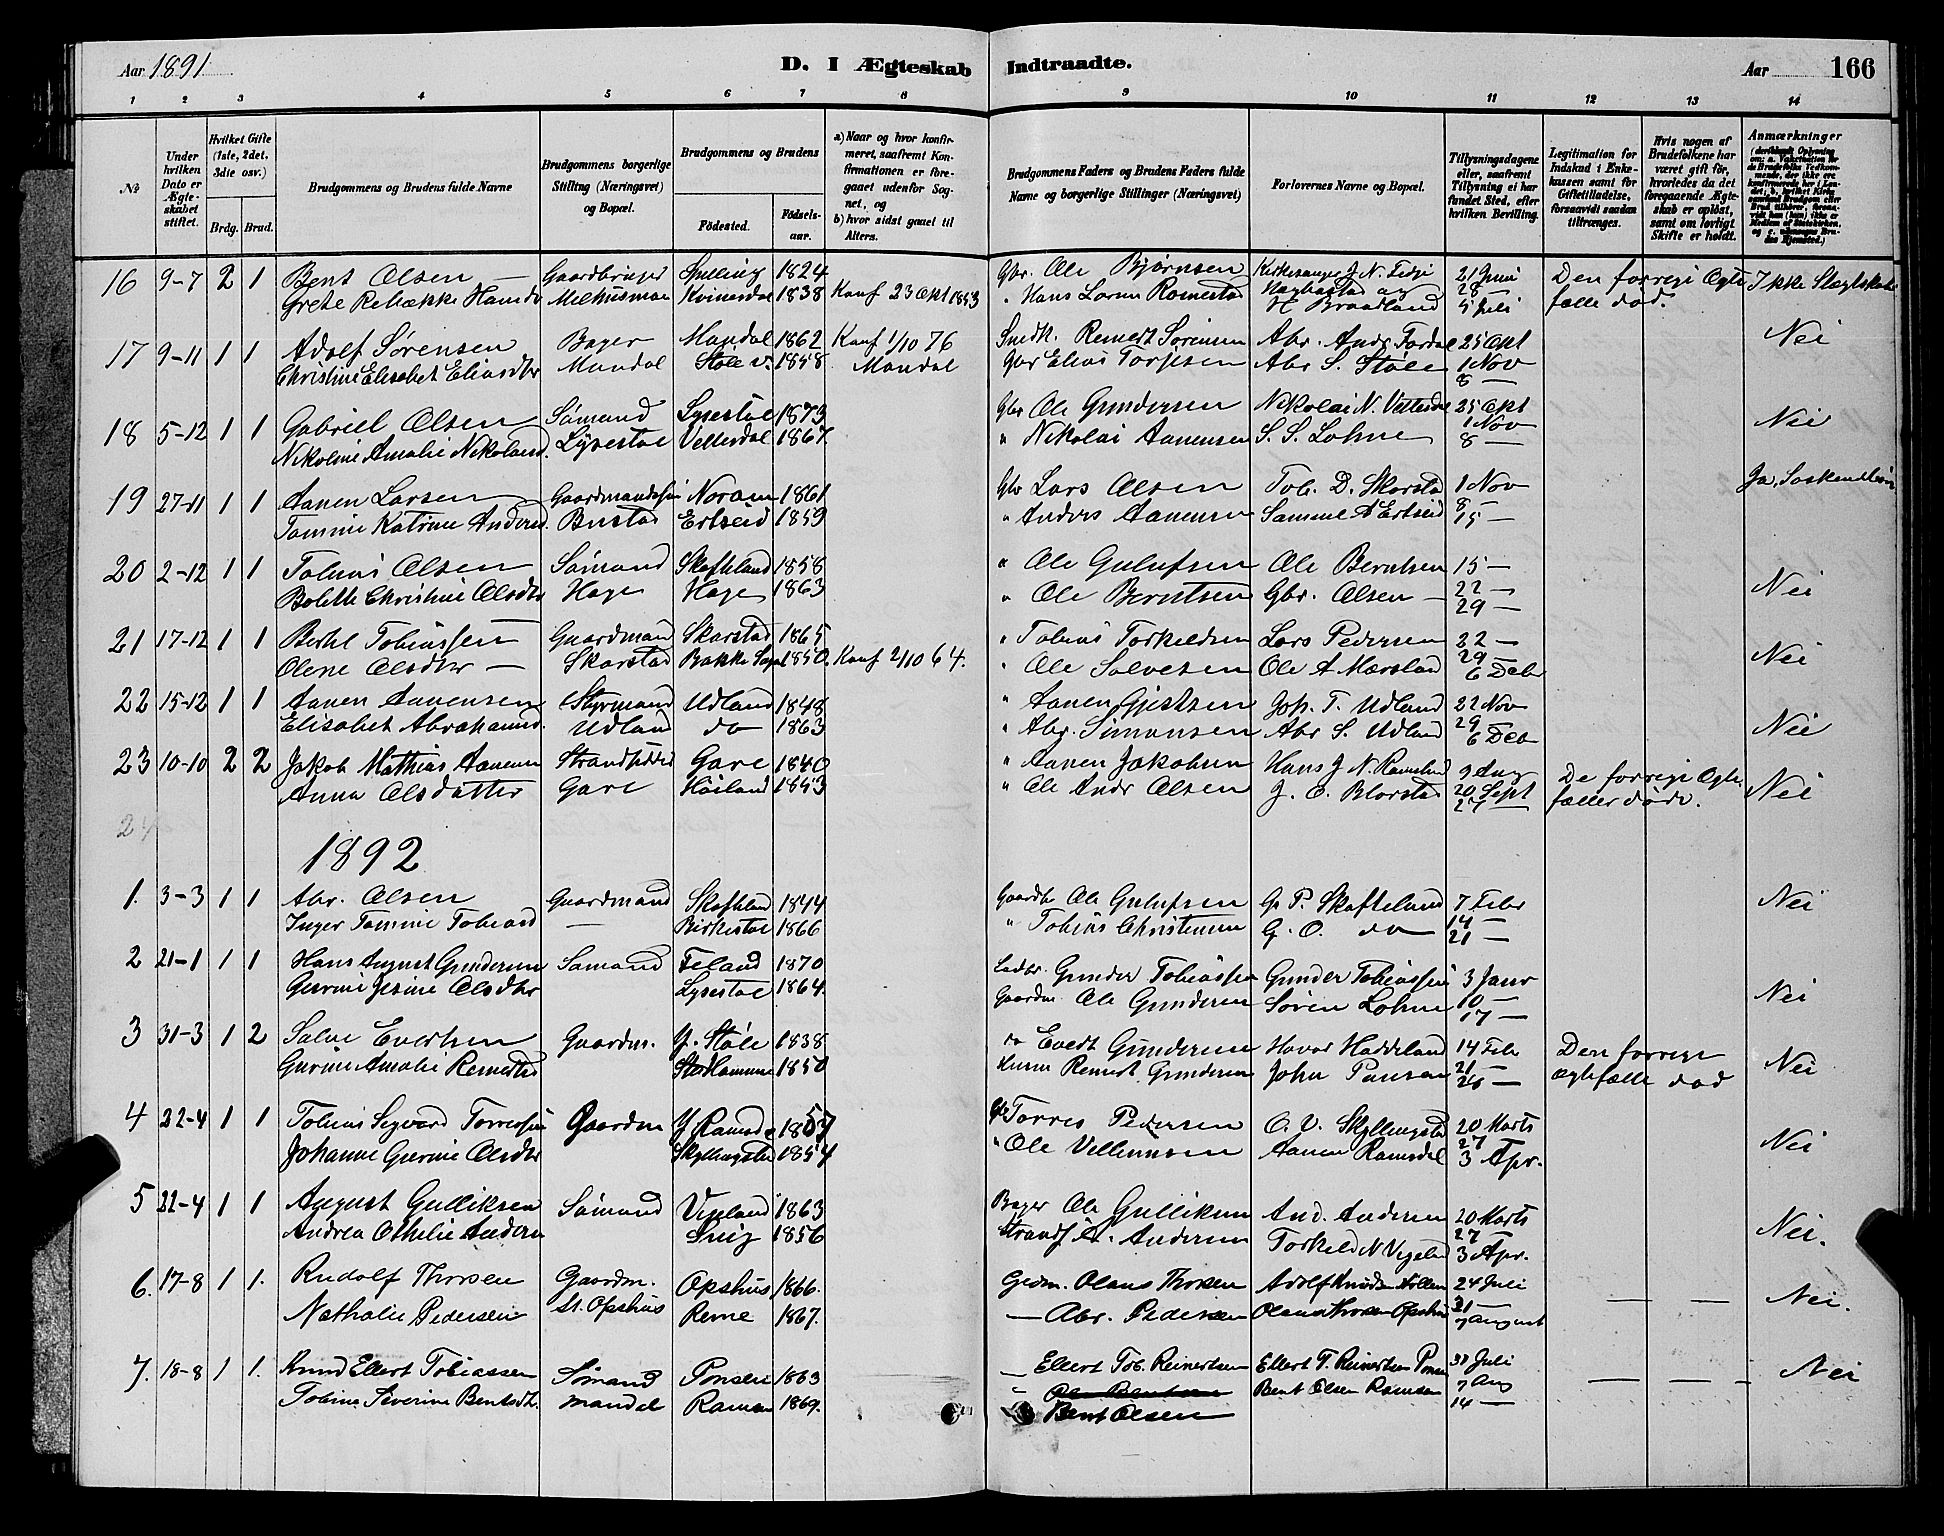 Aar 1891
D. I Ægteskab Indtraadte.
Aar 166
1 2 3 4 5 6 7 8 9 10 11 12 13 14
No
Under hvilken Dato er Ægteskabet stiftet.
Hvilket Gifte (1ste, 2det, 3die osv.)
Brdg. Brud.
Brudgommens og Brudens fulde Navne
Brudgommens borgerlige Stilling (Næringsvei) og Bopæl.
Brudgommens og Brudens
Fødested.
Fødselsaar.
a) Naar og hvor konfirmeret, saafremt Konfirmationen er foregaaet udenfor Sognet, og
b) hvor sidst gaaet til Alters.
Brudgommens Faders og Brudens Faders fulde Navne og borgerlige Stillinger (Næringsvei)
Forlovernes Navne og Bopæl.
Tillysningsdagene eller, saafremt Tillysning ei har fundet Sted, efter hvilken Bevilling.
Legitimation for Indskud i Enkekassen samt for Giftetilladelse, forsaavidt saadan tiltrænges.
Hvis nogen af Brudefolkene har været gift før, hvorledes da det foregaaende Ægteskab er opløst, samt om lovligt Skifte er holdt.
Anmærkninger
16 9-7 2 1 Bent Olsen — Gaardbruger 1824 Gbr. Ole Bjørnsen Kirkesanger J. N. 21 Juni Den forrige Ægte Ikke
Grete Kvinesdal 1838 Konf 23 Okt 1853 " Hans og 28 — fælle død.
H Braadland 5 Juli
17 9-11 1 1 Adolf Sørensen Bager Mandal 1862 Konf 1/10 76 Snedk. Reinert Sørensen Abr. Andr 25 Okt Nei
Christine Elisabet Eliasdtr Mandal Støle 1858 Mandal Gbr Elias Torjesen Abr S. Støle 1 Nov
8 —
18 5-12 1 1 Gabriel Olsen Sømand Lysestøl 1873 Gbr Ole Gundersen Nikolai N. Vetlesdal 25 Okt Nei
Nikoline Amalie Nikolaisd. Lysestøl Vetlesdal 1867 " Nikolai Aanensen S. S. Lohne 1 Nov
8 —
19 27-11 1 1 Aanen Larsen Gaardmandssøn 1861 Gbr Lars Olsen Tob. D. Skarstad 1 Nov Ja,
Tomine Katrine Andersd Bustad Ertseid 1859 " Anders Aanensen Samuel A Ertseid 8 —
15 —
20 2-12 1 1 Tobias Olsen Sømand Skofteland 1858 " Ole Gulufsen Ole Berntsen 15 — Nei
Bolette Christine Olsdtr Hage Hage 1863 " Ole Berntsen Gbr. Olsen — 22 —
29 —
21 17-12 1 1 Bertel Tobiassen Gaardmand Skarstad 1865 " Tobias Torkeldsen Lars Pedersen 22 — Nei
Olene Olsdtr — Skarstad Bakke Sogn 1850 Konf 2/10 64. " Ole Salvesen Ole A Mærstad 29 —
6 Debr
22 15-12 1 1 Aanen Aanensen Styrmand Udland 1848 " Aanen Gjertsen Joh. T. Udland 22 Nov Nei
Elisabet Abrahamsd. Udland do 1863 " Abr. Simonsen Abr S. Udland 29 —
6 Deb
23 10-10 2 2 Jakob Mathias Aanensen Strandsidder Gare 1840 " Aanen Jakobsen Hans J. N. 9 Aug De forrige Ægte Nei
Anna Olsdatter Gare Høiland 1853 " Ole Andr Olsen J. O. 20 Sept fæller døde.
27 —
24
1892
1. 3-3 1 1 Abr. Olsen Gaardmand Skofteland 1844 Gaardbr Ole Gulufsen G. P. Skofteland 7 Febr Nei
Inger Tomine Tobiasd — Birkestøl 1866 " Tobias Christensen G. O. do 14 —
21 —
2 21-1 1 1 Hans August Gundersen Sømand 1870 Gunder Tobiassen Gunder Tobiassen 3 Janr Nei
Gurine Jesine Olsdtr Lysestøl 1864. Gaardm. Ole Gundersen Søren Lohne 10 —
17 —
3 31-3 1 2 Salve Evertsen Gaardm. Y. Støle 1838 do Evert Gundersen Havar Haddeland 14 Febr Den forrige Nei
Gurine Amalie 1850 Reinert Gundersen John 21 — ægtefælle død
28 —
4 22-4 1 1 Tobias Sigvard Torressen Gaardm Y Ramsda 1857 Gbr Torres Pedersen O. V. Skyllingstad 20 Marts Nei
Johanne Gurine Olsdtr Skyllingstad 1854 " Ole Vellumsen Aanen Ramsdal 27 —
3 Apr.
5 22-4 1 1 August Gulliksen Sømand 1863 Bager Ole Gulliksen And. Andersen 20 Marts Nei.
Andrea Othelie Andersen Snig 1856 Strands. A. Andersen Torkeld N Vigeland 27 —
3 Apr.
6. 17-8 1 1. Rudolf Thorsen Gaardm. Opshus 1866. Grdm. Olaus Thorsen Adolf Knudsen 24 Juli — — — Nei.
Nathalie Pedersen St. Opshus Reme 1867. — Abr. Pedersen Olaus Thorsen Opshus 31 —
7 August
7. 18-8 1 1. Knud Ellert Tobiassen Sømand Ponsen 1863 — Ellert Tob. Reinertsen Ellert T. Reinertsen Ponsen 31 Juli — — — Nei
Tobine Severine Bentsdt. Mandal 1869. Bent Olsen 7 Aug
Bent Olsen 14 —